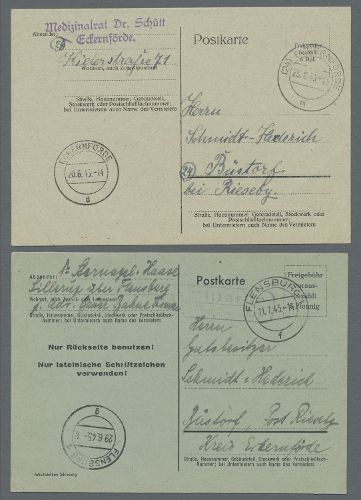 Medizinalrat Dr. Schütt
Eckernförde.
Absender:
Kielerstraße 71
Wohnort, auch Zustellpostamt
Straße, Hausnummer, Gebäudeteil,
Stockwerk oder Postschließfachnummer;
bei Untermietern auch Name des Vermieters
ECKERNFÖRDE
20.6.45.-14
d
Postkarte
Herrn
Schmidt-Hederich
24
Büstorf
bei Rieseby.
Straße, Hausnummer, Gebäudeteil, Stockwerk oder
Postschließfachnummer
bei Untermietern auch Name des Vermieters
Absender:
Sillerup über Flensburg
Wohnort, auch Zustell- oder Leitpostamt
Straße, Hausnummer, Gebäudeteil, Stockwerk oder Postschließfach-
nummer; bei Untermietern auch Name des Vermieters
Nur Rückseite benutzen!
Nur lateinische Schriftzeichen
verwenden!
FLENSBURG 2
29.6.45
g
Postkarte
Freigebühr
voraus-
bezahlt
Pfennig
FLENSBURG
11.7.45-14
f
Herrn
Gutsbesitzer
Schmidt-Hederich
Büstorf, Post Rieseby
Kreis Eckernförde
Straße, Hausnummer, Gebäudeteil, Stockwerk oder Postschließfachnummer;
bei Untermietern auch Name des Vermieters